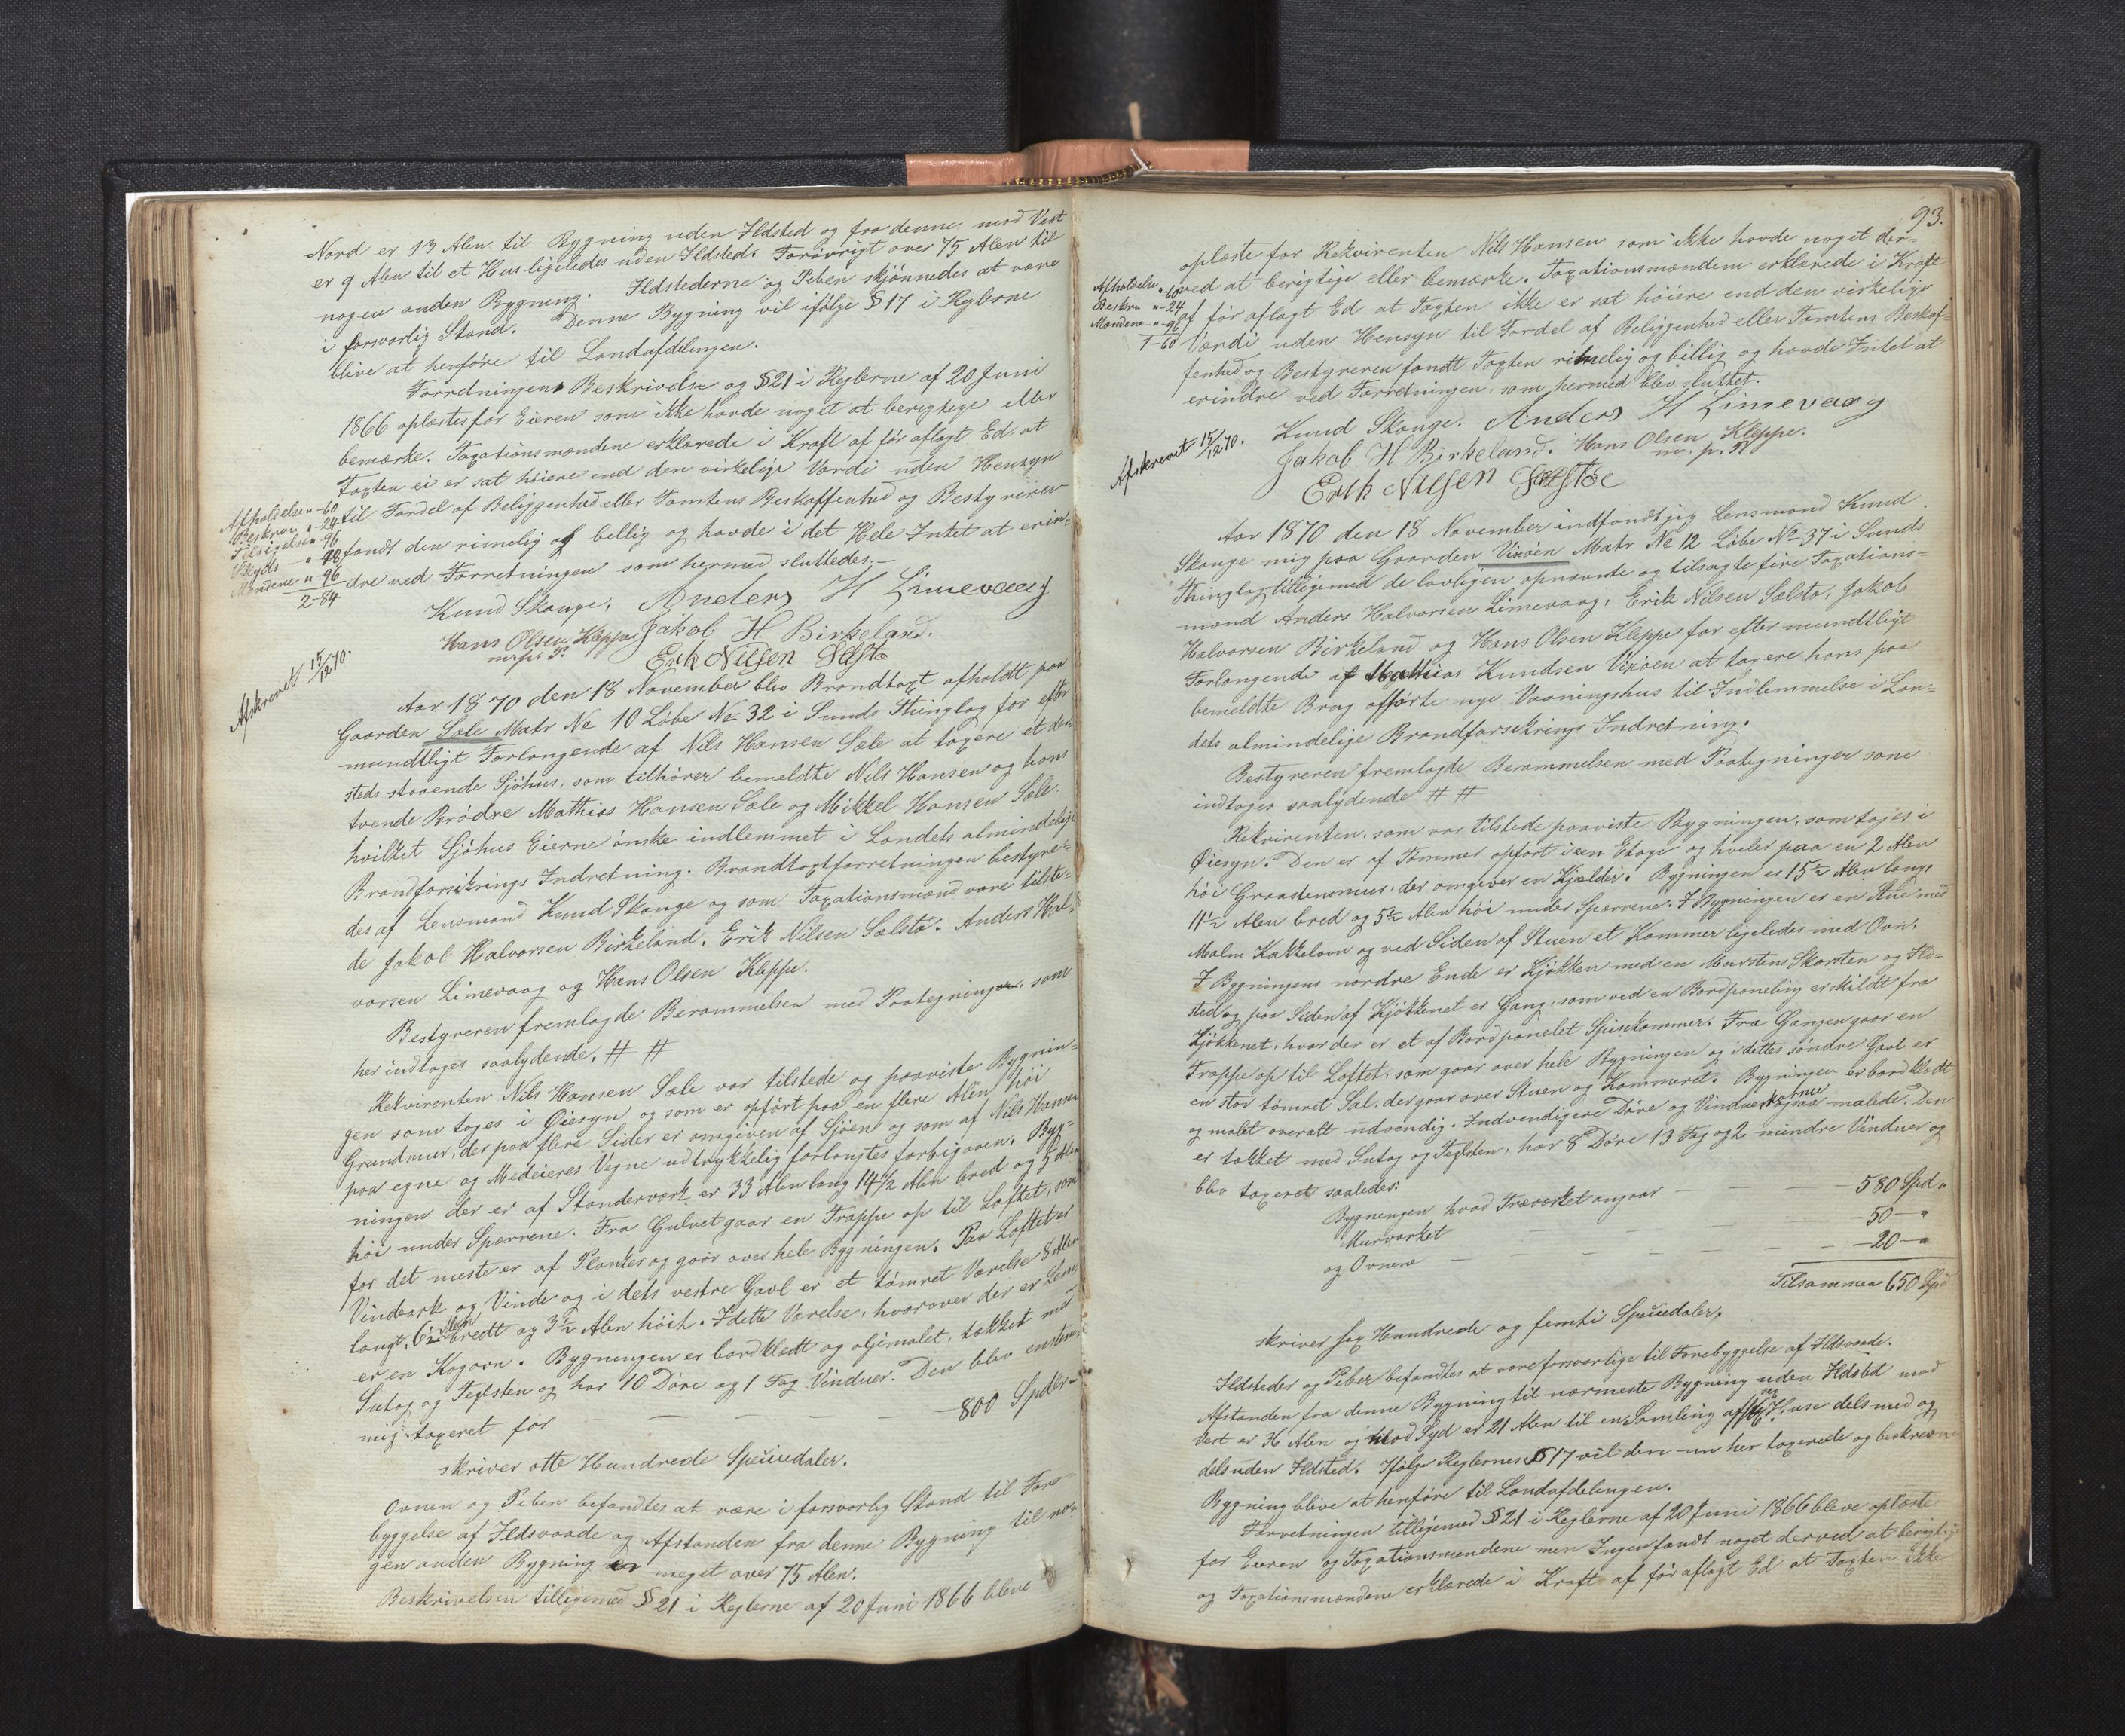 Nord er 13 Alen til Bygning uden Ildsted og fra denne mod Vest
er 9 Alen til et Hus ligeledes uden Ildsted. Forøvrigt over 75 Alen til
nogen anden Bygning. Ildstederne og Piben skjønnedes at være
i forsvarlig Stand. Denne Bygning vil ifølge § 17 i Reglerne
blive at henføre til Landafdelingen.
Forretningens Beskrivelse og § 21 i Reglerne af 20 Juni
1866 oplæstes for Eieren som ikke havde noget at berigtige eller
bemærke. Taxationsmændene erklærede i Kraft af før aflagt Ed at
Taxten ei er sat høiere end den virkelige Værdi uden Hensyn
til Fordel af Beliggenhed eller Tomtens Beskaffenhed og Bestyreren
fandt den rimelig og billig og havde i det Hele Intet at erin-
dre ved Forretningen som hermed sluttedes.
Afholdelse " - 60
Beskriv. " - 24
Tilsigelse " 96
Skyds - " 48
Mændene " 96
2-84
Knud Skange, Anders H Limevaag
Hans Olsen Kleppe Jakob H Birkeland.
m. p. P.
Erik Nilsen Selstø
Afskrevet 15/12 70.
Aar 1870 den 18 November blev Brandtaxt afholdt paa
Gaarden Sæle Matr No 10 Løbe No 32 i Sunds Thinglag for efter
mundtligt Forlangende af Nils Hansen Sæle at taxere et den
steds staaende Sjøhus, som tilhører bemeldte Nils Hansen og hans
tvende Brødre Mathias Hansen Sæle og Mikkel Hansen Sæle.
hvilket Sjøhus Eierne ønske indlemmet i Landets almindelige
Brandforsikrings Indretning. Brandtaxtforretningen bestyre-
des af Lensmand Knud Skange og som Taxationsmænd vare tilste-
de Jakob Halvorsen Birkeland, Erik Nilsen Sælstø, Anders Hal-
vorsen Limevaag og Hans Olsen Kleppe.
Bestyreren fremlagde Berammelsen med Paategninger, som
her indtages saalydende. # #
Rekvirenten Nils Hansen Sæle var tilstede og paaviste Bygnin-
gen som toges i Øiesyn og som er opført paa en flere Alen høi
Grundmur, der paa flere Sider er omgiven af Sjøen og som af Nils Hansen
paa egne og Medeieres Vegne udtrykkelig forlangtes forbigaaen. Byg-
ningen der er af Standerværk er 33 Alen lang 14 1/2 Alen bred og 5 Alen
høi under Sperrene. Fra Gulvet gaar en Trappe op til Loftet, som
for det meste er af Planker og gaar over hele Bygningen. Paa Loftet er
Vindeark og Vinde og i dets vestre Gavl er et tømret Værelse 8 Alen
langt, 6 1/2 Alen bredt og 3 1/2 Alen høit. I dette Værelse, hvorover der er
er en Kogeovn. Bygningen er bordklædt og oljemalet, tækket med
Sutag og Teglsten og har 10 Døre og 1 Fag Vinduer. Den blev enstem-
mig taxeret for — — — — — 800 Spdlr
skriver otte Hundrede Speciedaler.
Ovnen og Piben befandtes at være i forsvarlig Stand til Fore-
byggelse af Ildsvaade og Afstanden fra denne Bygning til no-
gen anden Bygning er meget over 75 Alen.
Beskrivelsen tilligemed § 21 i Reglerne af 20 Juni 1866 bleve
93.
oplæste for Rekvirenten Nils Hansen som ikke havde noget der-
ved at berigtige eller bemærke. Taxationsmændene erklærede i Kraft
af før aflagt Ed at Taxten ikke er sat høiere end den virkelige
Værdi uden Hensyn til Fordel af Beliggenhed eller Tomtens Beskaf-
fenhed og Bestyreren fandt Taxten rimelig og billig og havde Intet at
erindre ved Forretningen, som hermed blev sluttet.
Afholdelse " - 60
Beskriv " - 24
Mændene - " - 96
1-60
Knud Skange. Anders H Limevaag
Jakob H Birkeland. Hans Olsen Kleppe.
m. p. P.
Erik Nilsen Sælstø
Afskrevet 15/12 70.
Aar 1870 den 18 November indfandt jeg Lensmand Knud
Skange mig paa Gaarden Vixøen Matr No 12 Løbe No 37 i Sunds
Thinglag tilligemed de lovligen opnævnte og tilsagte fire Taxations-
mænd Anders Halvorsen Limevaag, Erik Nilsen Sælstø, Jakob
Halvorsen Birkeland og Hans Olsen Kleppe for efter mundtligt
Forlangende af Mathias Knudsen Vixøen at taxere hans paa
bemeldte Brug opførte nye Vaaningshus til Indlemmelse i Lan-
dets almindelige Brandforsikrings Indretning.
Bestyreren fremlagde Berammelsen med Paategninger som
indtages saalydende # #
Rekvirenten, som var tilstede paaviste Bygningen, som toges i
Øiesyn. Den er af Tømmer opført i een Etage og hviler paa en 2 Alen
høi Graastensmur, der omgiver en Kjælder. Bygningen er 15 1/2 Alen lang,
11 1/2 Alen bred og 5 1/2 Alen høi under Sperrene. I Bygningen er en Stue med
Malm Kakkelovn og ved Siden af Stuen et Kammer ligeledes med Ovn.
I Bygningens nordre Ende er Kjøkken med en Murstens Skorsten og Ild-
sted og paa Siden af Kjøkkenet er Gang, som ved en Bordpaneling er skildt fra
Kjøkkenet, hvor der er et af Bord panelet Spisekammer. Fra Gangen gaar en
Trappe op til Loftet, som gaar over hele Bygningen og i dettes søndre Gavl er
en stor tømret Sal, der gaar over Stuen og Kammeret. Bygningen er bordklædt
og malet overalt udvendig. Indvendigere Døre og Vindueskarme ogsaa malede. Den
er tækket med Sutag og Teglsten, har 8 Døre 13 Fag og 2 mindre Vinduer og
blev taxeret saaledes:
Bygningen hvad Træværket angaar — — — 580 Spd "
Murværket 50 - "
og Ovnene — — — — — — 20 - "
Tilsammen 650 Spd
skriver sex Hundrede og femti Speciedaler.
Ildsteder og Piber befandtes at være forsvarlige til Forebyggelse af Ildsvaade.
Afstanden fra denne Bygning til nærmeste Bygning uden Ildsted mod
Vest er 36 Alen og mod Syd er 21 Alen til en Samling af Huse dels med og
dels uden Ildsted. Ifølge Reglernes § 17 vil den nu her taxerede og beskrevne
Bygning blive at henføre til Landafdelingen.
Forretningen tilligemed § 21 i Reglerne af 20 Juni 1866 bleve oplæste
for Eieren og Taxationsmændene men Ingen fandt noget derved at berigtige
og Taxationsmændene erklærede i Kraft af før aflagt Ed at Taxten ikke